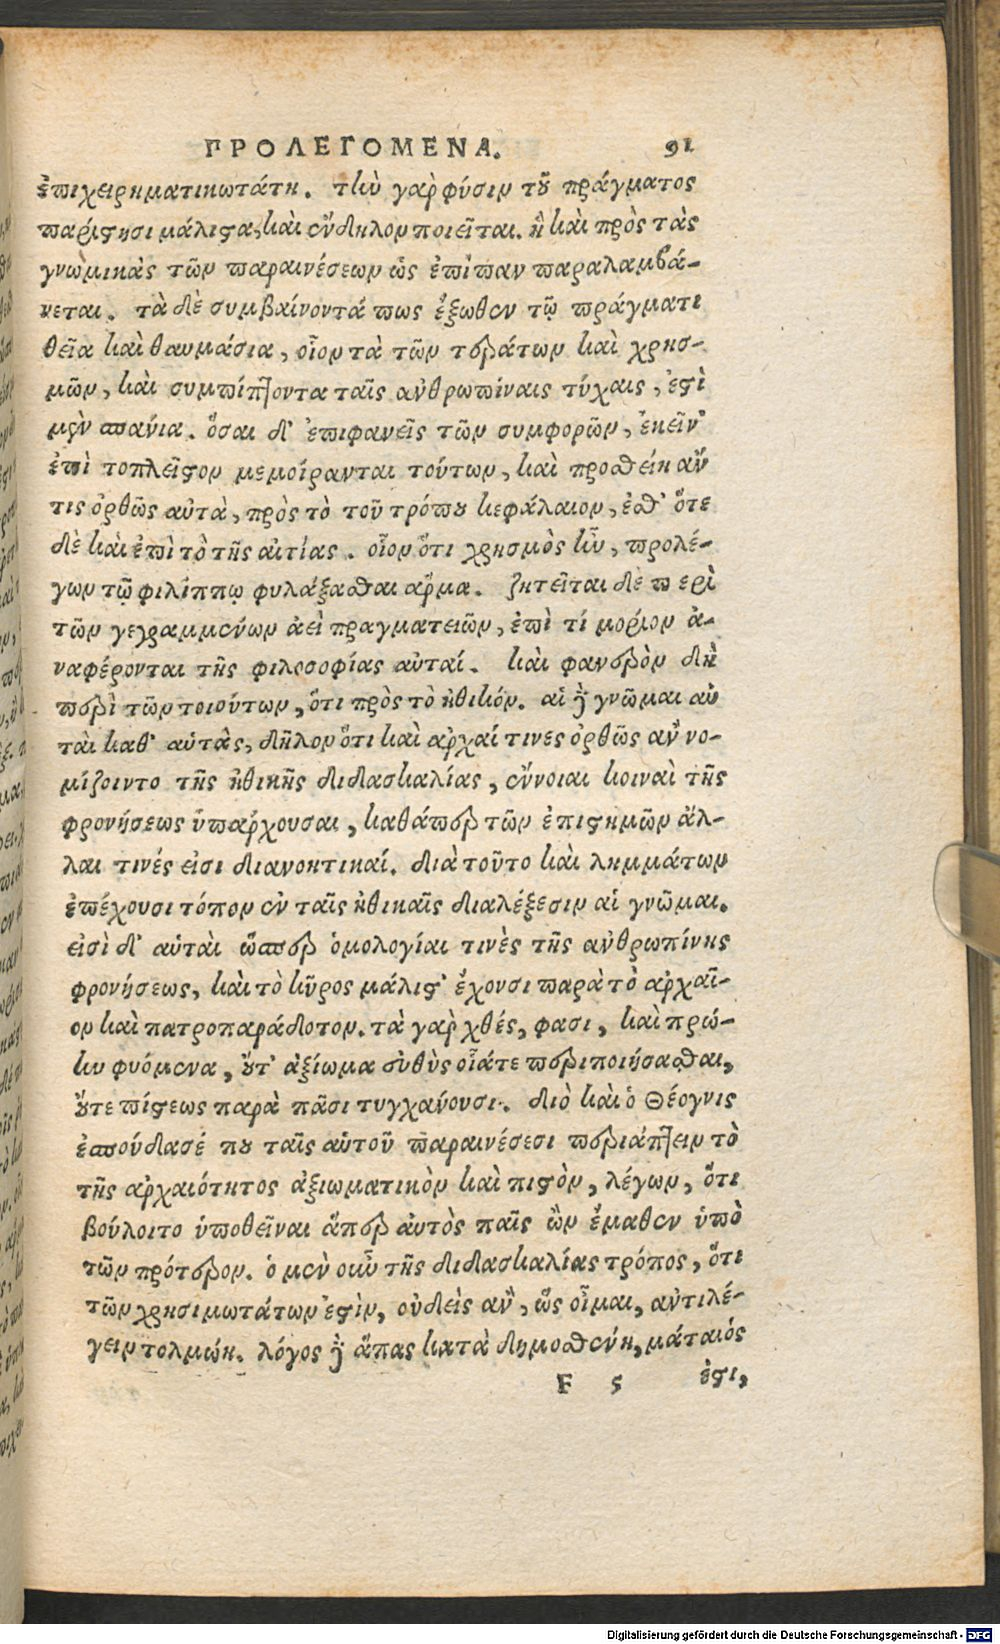 ΠΡΟΛΕΓΟΜΕΝΑ. 91
ἐπιχειρηματικωτάτη. τὴν γὰρ φύσιν τοῦ πράγματος
παρίστησι μάλιστα, καὶ ἔνδηλον ποιεῖται. ἣ καὶ πρὸς τὰς
γνωμικὰς τῶν παραινέσεων ὡς ἐπίπαν παραλαμβά-
νεται. τὰ δὲ συμβαίνοντά πως ἔξωθεν τῷ πράγματι
θεῖα καὶ θαυμάσια, οἷον τὰ τῶν τεράτων καὶ χρησ-
μῶν, καὶ συμπίπτοντα ταῖς ἀνθρωπίναις τύχαις, ἐστὶ
μὲν σπάνια. ὅσαι δ' ἐπιφανεῖς τῶν συμφορῶν, ἐκεῖν'
ἐπὶ τοπλεῖστον μεμοίρανται τούτων, καὶ προσθείη ἄν
τις ὀρθῶς αὐτὰ, πρὸς τὸ τοῦ τρόπου κεφάλαιον, ἐσθ' ὅτε
δὲ καὶ ἐπὶ τὸ τῆς αἰτίας. οἷον ὅτι χρησμὸς ἦν, προλέ-
γων τῷ φιλίππῳ φυλάξασθαι ἅρμα. ζητεῖται δὲ περὶ
τῶν γεγραμμένων ἀεὶ πραγματειῶν, ἐπὶ τί μόριον ἀ-
ναφέρονται τῆς φιλοσοφίας αὐταί. καὶ φανερὸν δὴ
περὶ τῶν τοιούτων, ὅτι πρὸς τὸ ἠθικόν. αἱ γὰρ γνῶμαι αὐ
ταὶ καθ' αὑτὰς, δῆλον ὅτι καὶ ἀρχαί τινες ὀρθῶς ἂν νο-
μίζοιντο τῆς ἠθικῆς διδασκαλίας, ἔννοιαι κοιναὶ τῆς
φρονήσεως ὑπάρχουσαι, καθάπερ τῶν ἐπιστημῶν ἄλ-
λαι τινές εἰσι διανοητικαί. διὰ τοῦτο καὶ λημμάτων
ἐπέχουσι τόπον ἐν ταῖς ἠθικαῖς διαλέξεσιν αἱ γνῶμαι.
εἰσὶ δ' αὑταὶ ὥσπερ ὁμολογίαι τινὲς τῆς ἀνθρωπίνης
φρονήσεως, καὶ τὸ κῦρος μάλιστ' ἔχουσι παρὰ τὸ ἀρχαῖ-
ον καὶ πατροπαράδοτον. τὰ γὰρ χθές, φασι, καὶ πρώ-
ην φυόμενα, οὔτ' ἀξίωμα εὐθὺς οἷάτε περιποιήσασθαι,
οὔτε πίστεως παρὰ πᾶσι τυγχάνουσι. διὸ καὶ ὁ Θέογνις
ἐσπούδασέ που ταῖς αὑτοῦ παραινέσεσι περιάπτειν τὸ
τῆς ἀρχαιότητος ἀξιωματικὸν καὶ πιστὸν, λέγων, ὅτι
βούλοιτο ὑποθεῖναι ἅπερ αὐτὸς παῖς ὢν ἔμαθεν ὑπὸ
τῶν πρότερον. ὁ μὲν οὖν τῆς διδασκαλίας τρόπος, ὅτι
τῶν χρησιμωτάτων ἐστὶν, οὐδεὶς ἂν, ὡς οἶμαι, ἀντιλέ-
γειν τολμώη. λόγος γὰρ ἅπας κατὰ δημοσθένη, μάταιός
F 5 ἐστι,
Digitalisierung gefördert durch die Deutsche Forschungsgemeinschaft - DFG